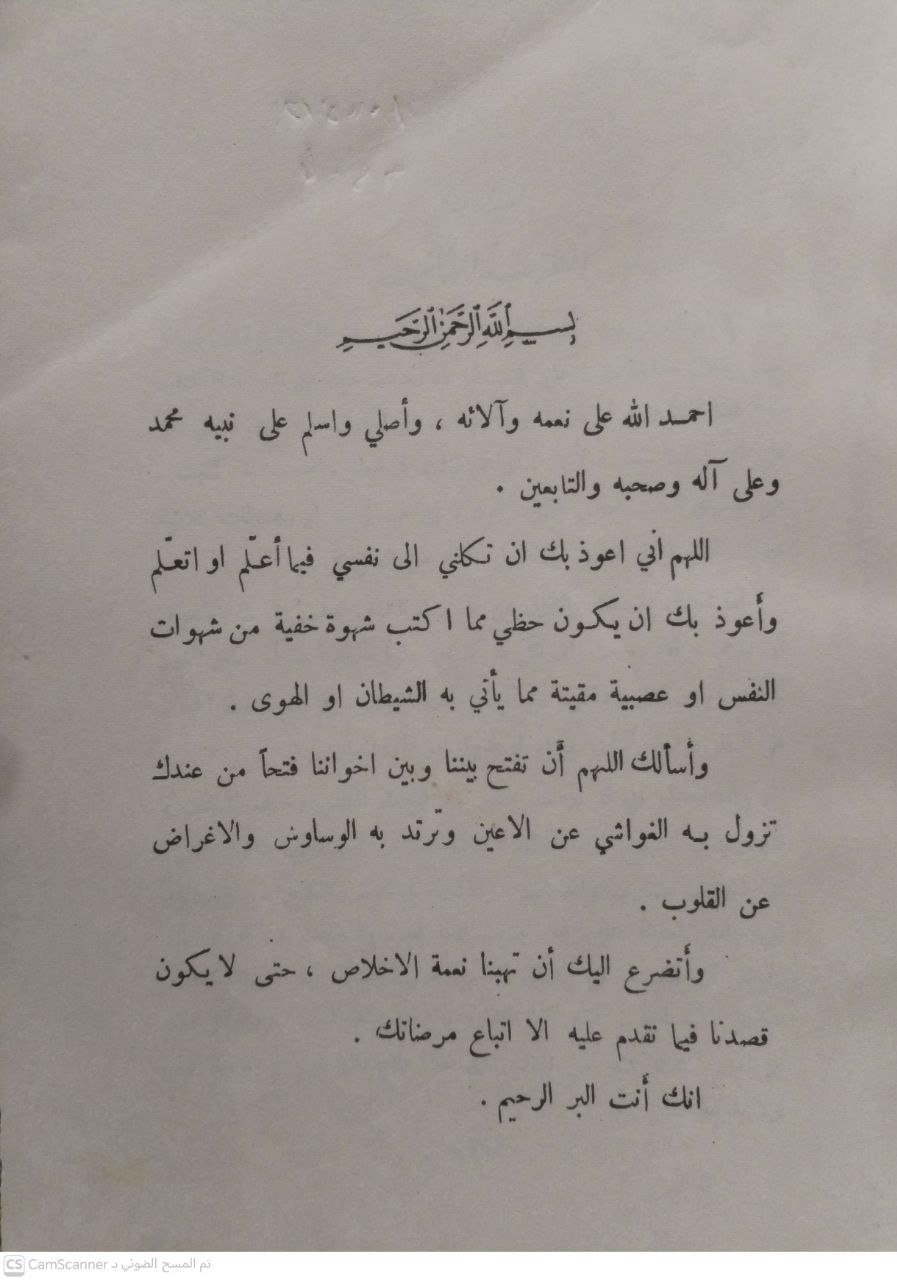 بِسْمِ اللَّهِ الرَّحْمَنِ الرَّحِيمِ
احمد الله على نعمه وآلائه ، وأصلي واسلم على نبيه محمد
وعلى آله وصحبه والتابعين .
اللهم اني اعوذ بك ان تكلني الى نفسي فيما أعلّم او اتعلّم
وأعوذ بك ان يكون حظي مما اكتب شهوة خفية من شهوات
النفس او عصبية مقيتة مما يأتي به الشيطان او الهوى .
وأسألك اللهم أن تفتح بيننا وبين اخواننا فتحاً من عندك
تزول به الغواشي عن الاعين وترتد به الوساوس والاغراض
عن القلوب .
وأتضرع اليك أن تهبنا نعمة الاخلاص ، حتى لا يكون
قصدنا فيما نقدم عليه الا اتباع مرضاتك .
انك أنت البر الرحيم .
CS CamScanner تم المسح الضوئي بـ